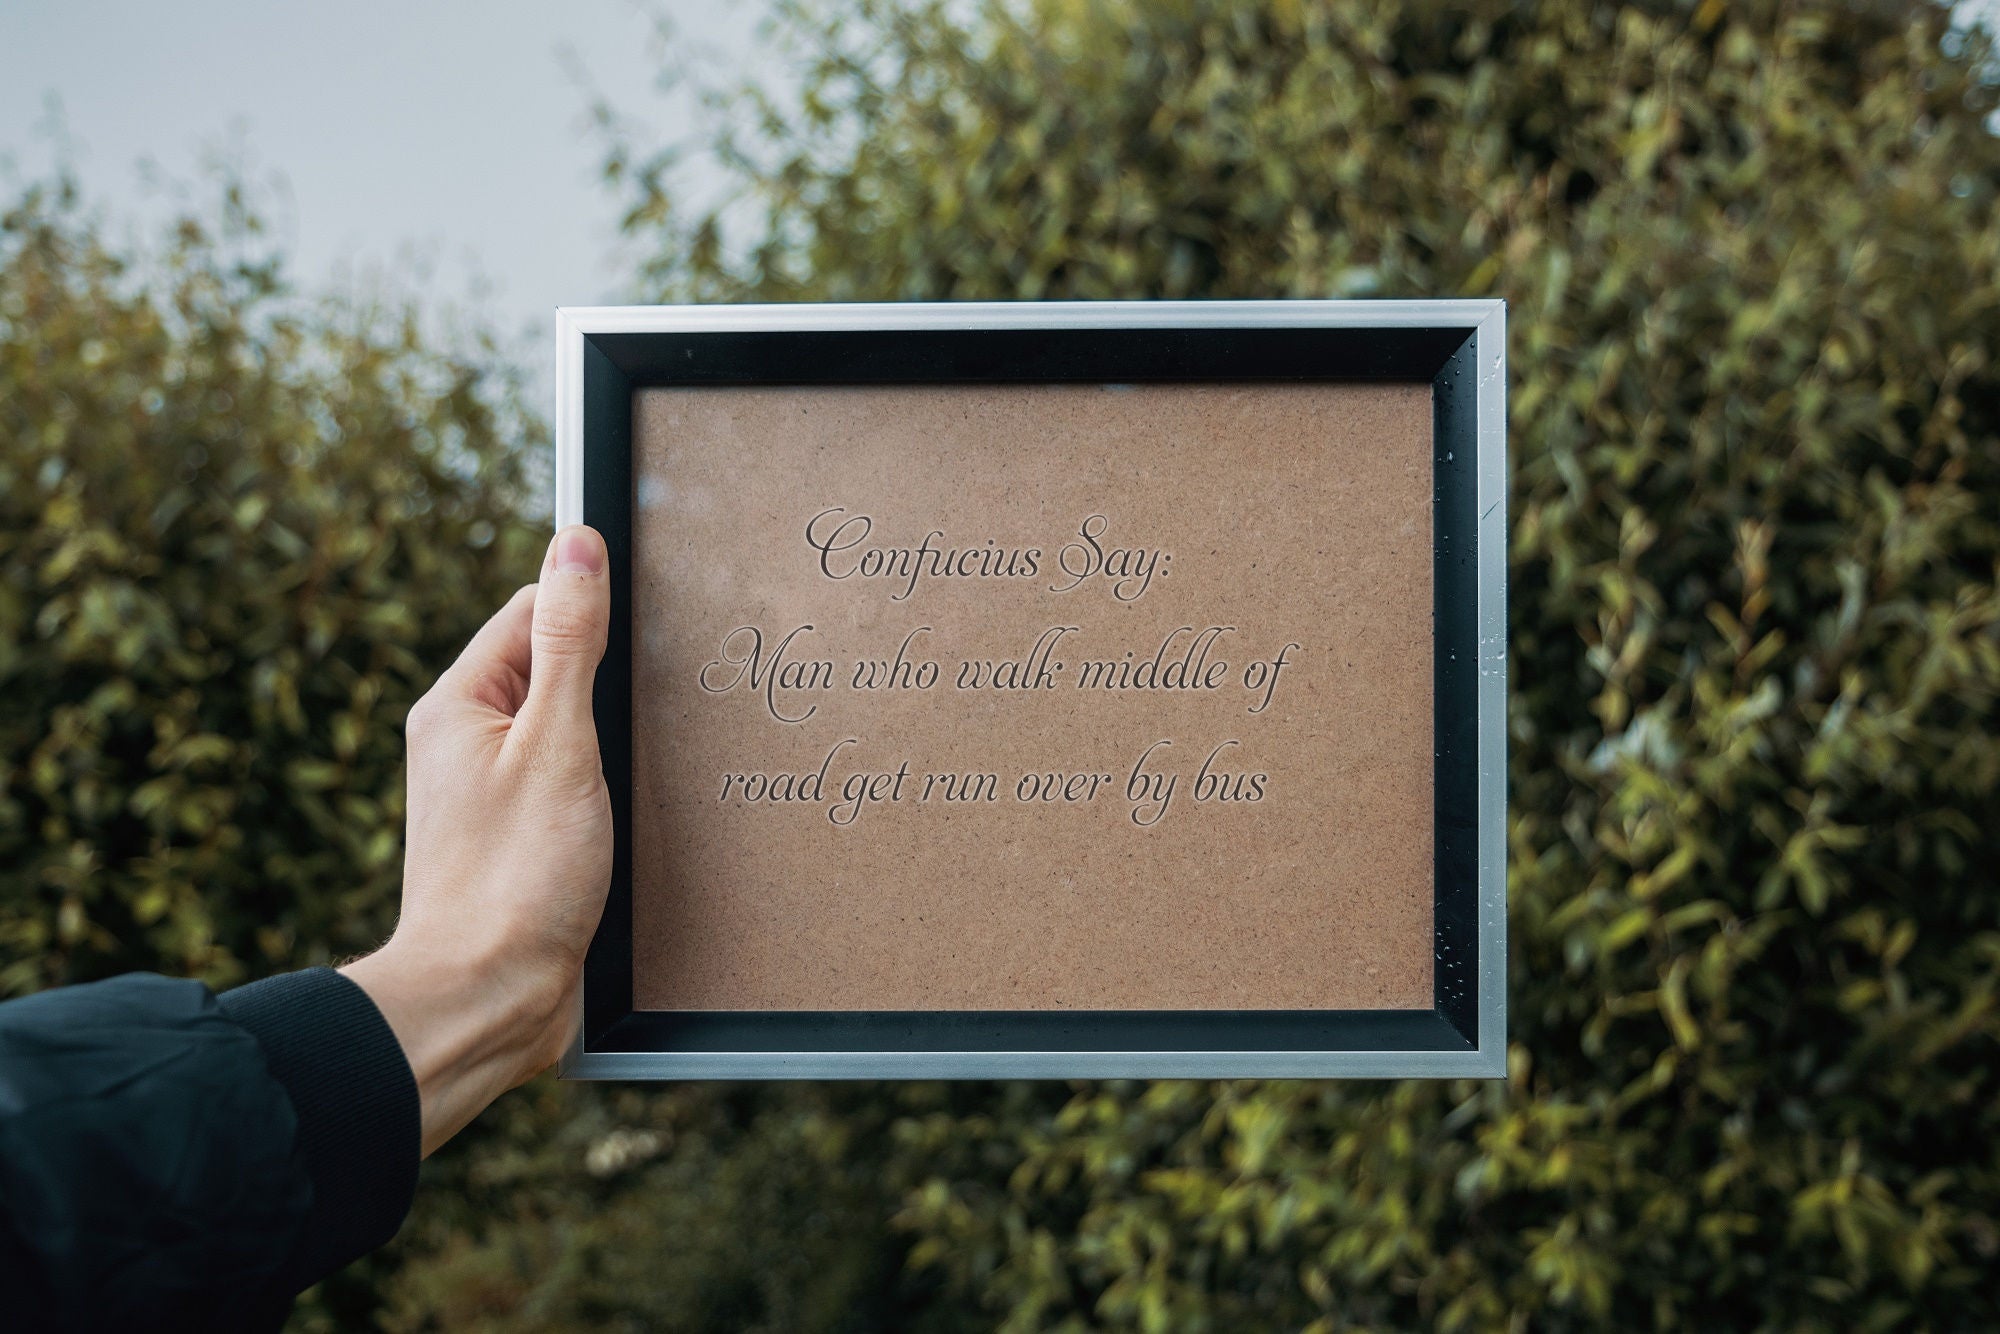 Confucius Say:
Man who walk middle of
road get run over by bus